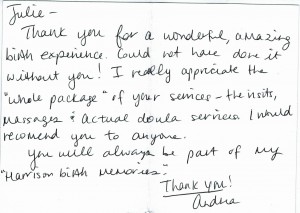 Julie –
Thank you for a wonderful, amazing
birth experience. Could not have done it
without you! I really appriciate the
"whole package" of your services – the visits,
massages & actual doula services. I would
recomend you to anyone.
You will always be part of my
"Harrison birth memories".
Thank you!
Andrea